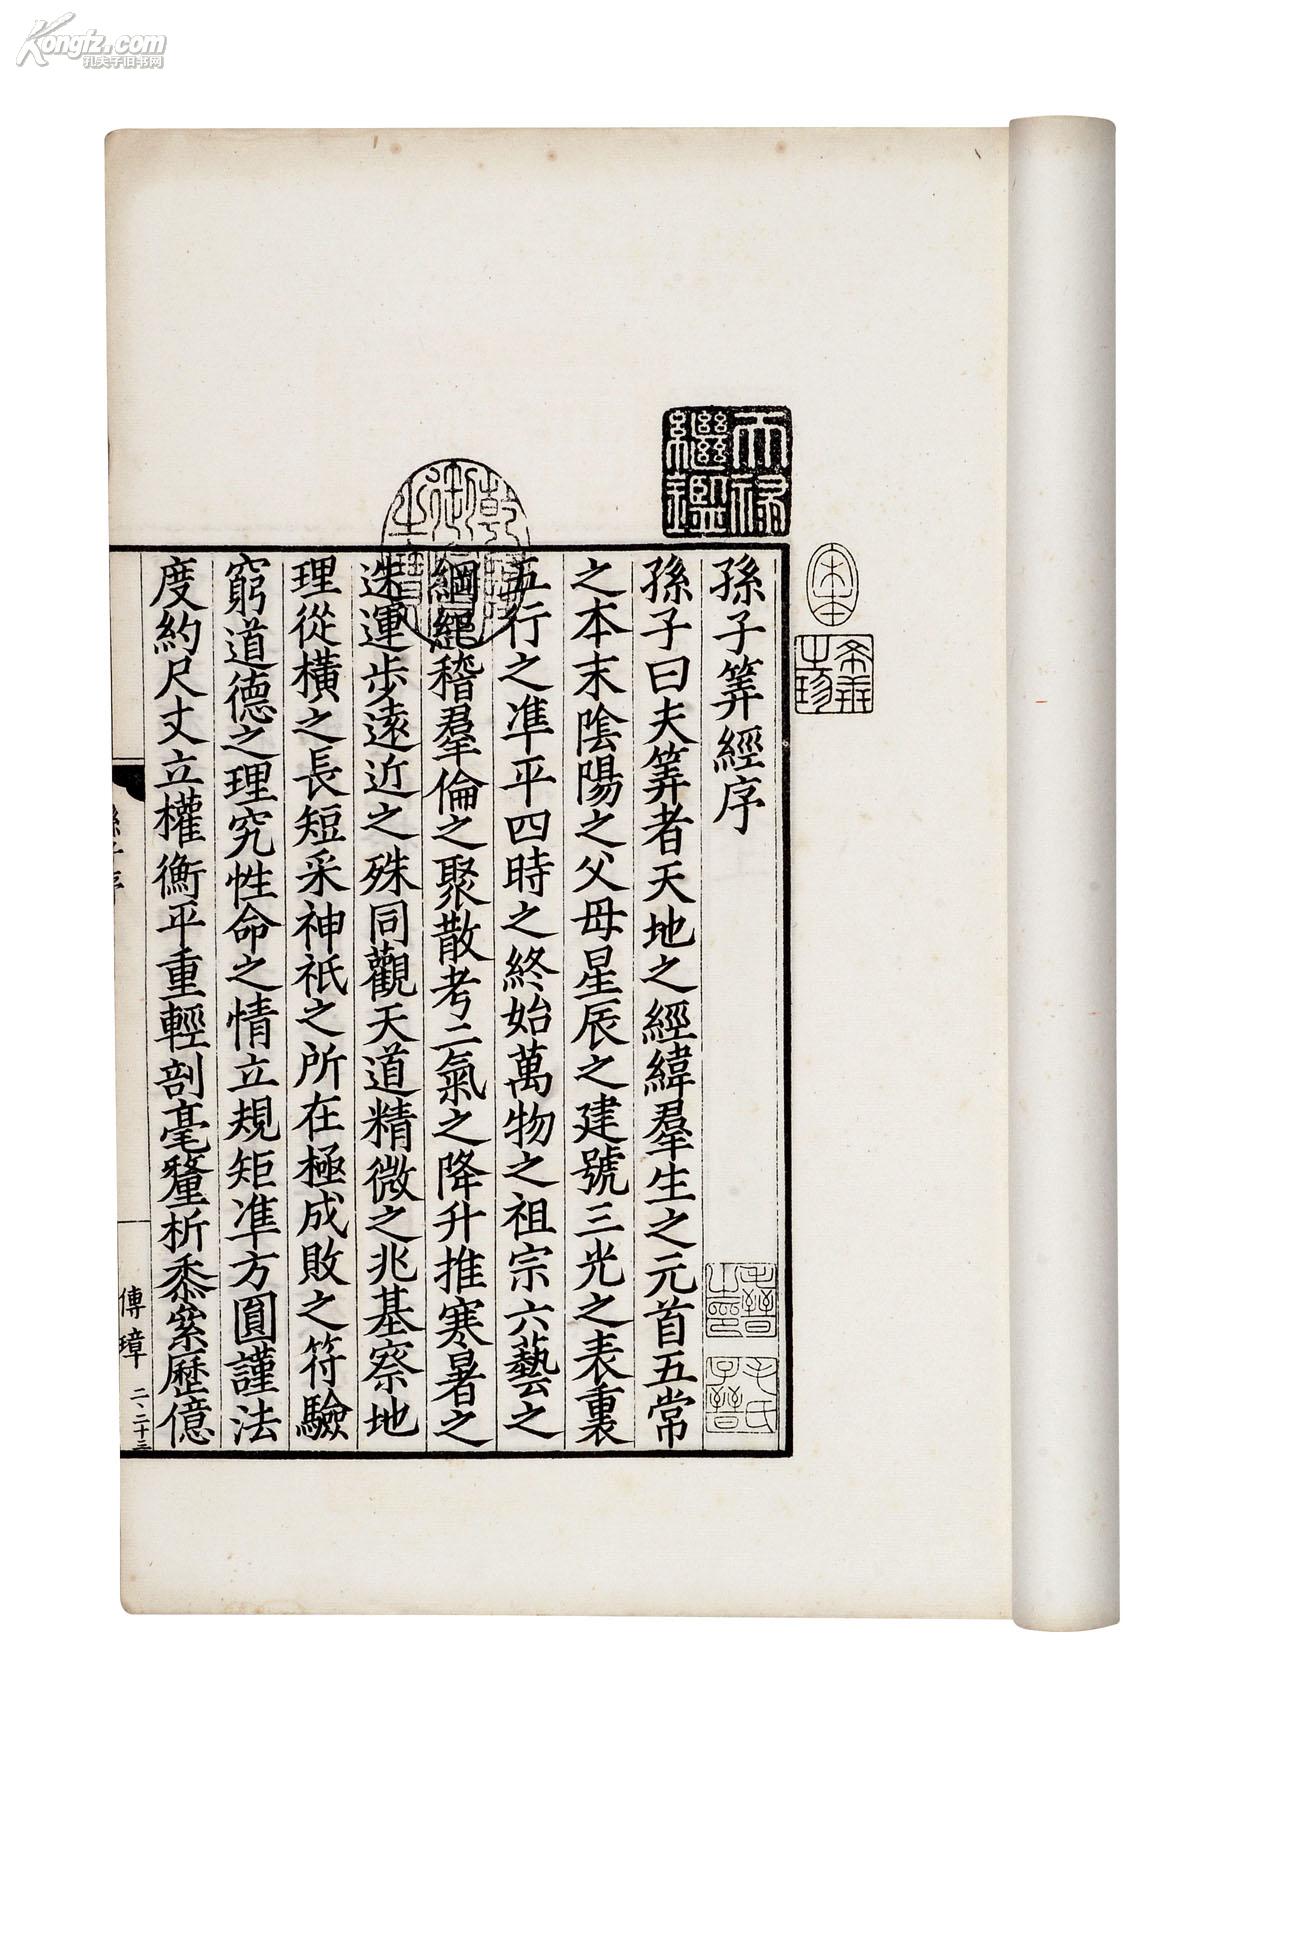 Kongfz.com
孔夫子旧书网
天祿
繼鑑
宋本
希世
之珍
乾隆
御覽
之寶
孫子筭經序
孫子曰夫筭者天地之經緯羣生之元首五常
之本末隂陽之父母星辰之建號三光之表裏
五行之准平四時之終始萬物之祖宗六藝之
綱紀稽羣倫之聚散考二氣之降升推寒暑之
迭運步遠近之殊同觀天道精微之兆基察地
理從橫之長短采神祇之所在極成敗之符驗
窮道德之理究性命之情立規矩准方圓謹法
度約尺丈立權衡平重輕剖毫釐析黍絫歷億
毛晉
之印
毛氏
子晉
孫子序
傅璋
二、二十三